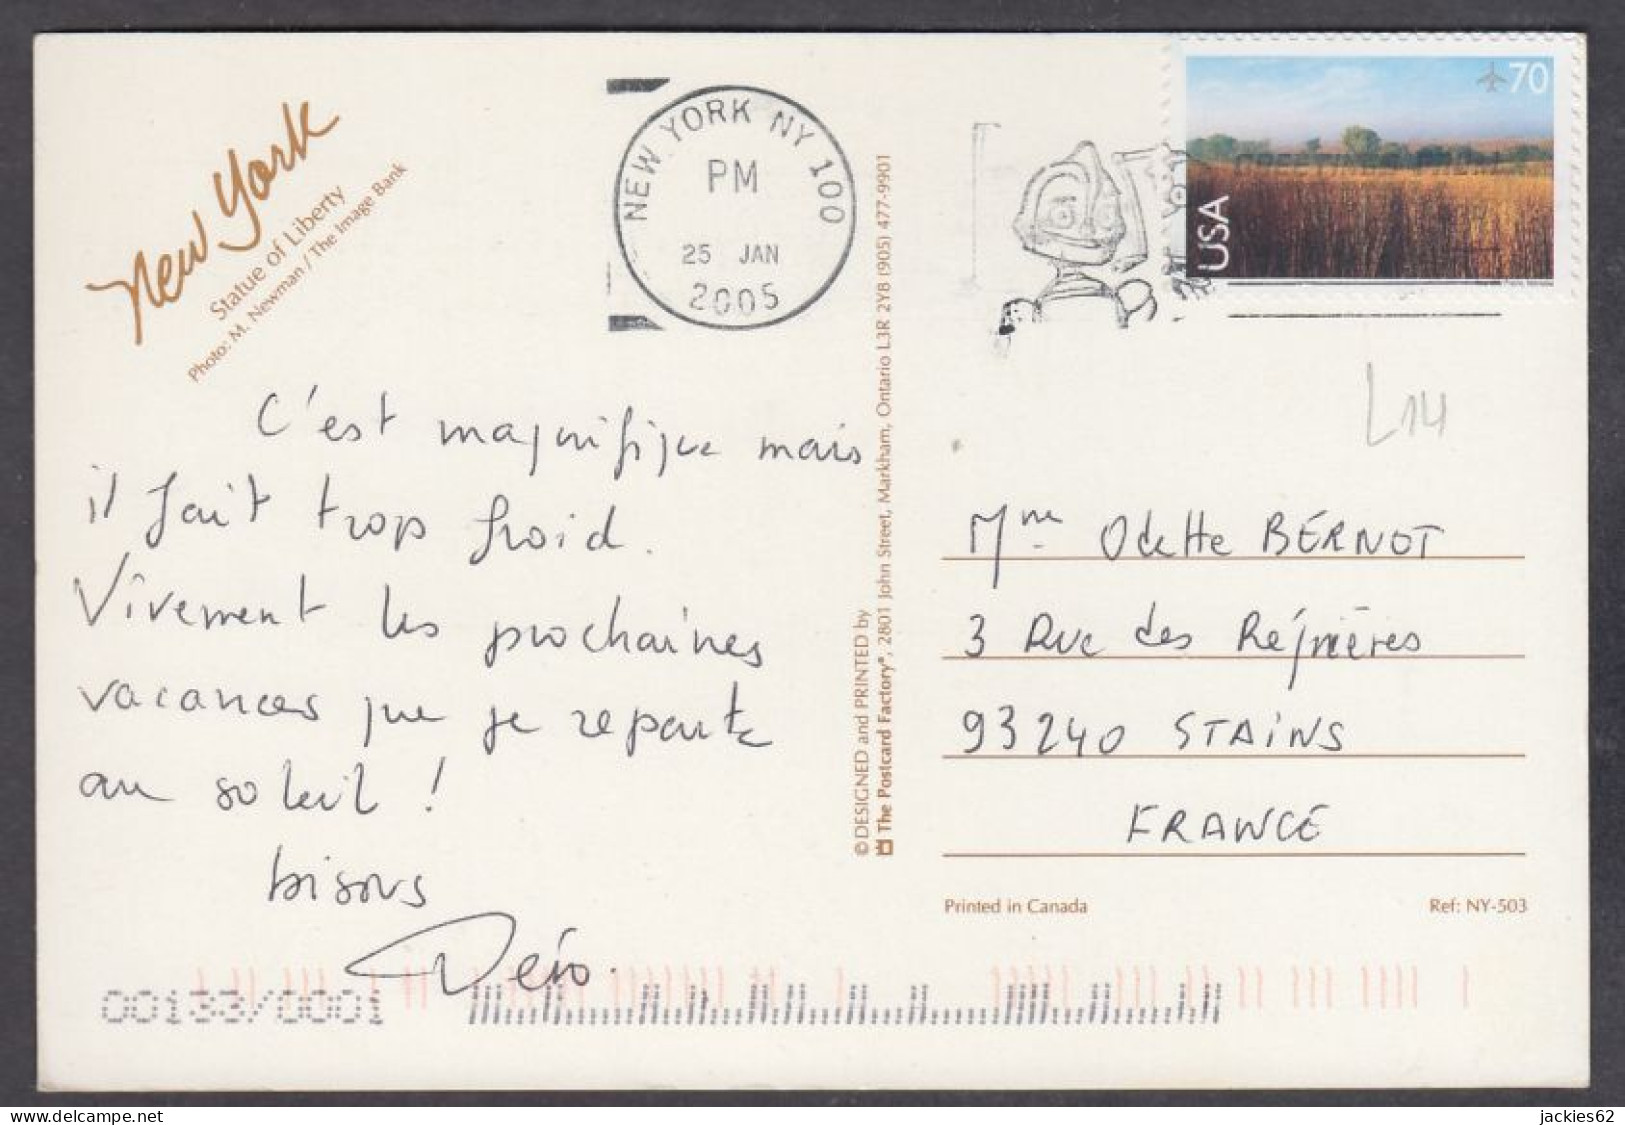 New York
Statue of Liberty
Photo: M. Newman / The Image Bank
NEW YORK NY 100
PM
25 JAN
2005
70
USA
L14
C'est magnifique mais
il fait trop froid.
Vivement les prochaines
vacances que je reparte
au soleil !
bisous
©DESIGNED and PRINTED by
The Postcard Factory®, 2801 John Street, Markham, Ontario L3R 2Y8 (905) 477-9901
Mme Odette BERNOT
3 Rue des Régnières
93240 STAINS
FRANCE
Printed in Canada
Ref: NY-503
00133/0001
delcampe.net
jackies62